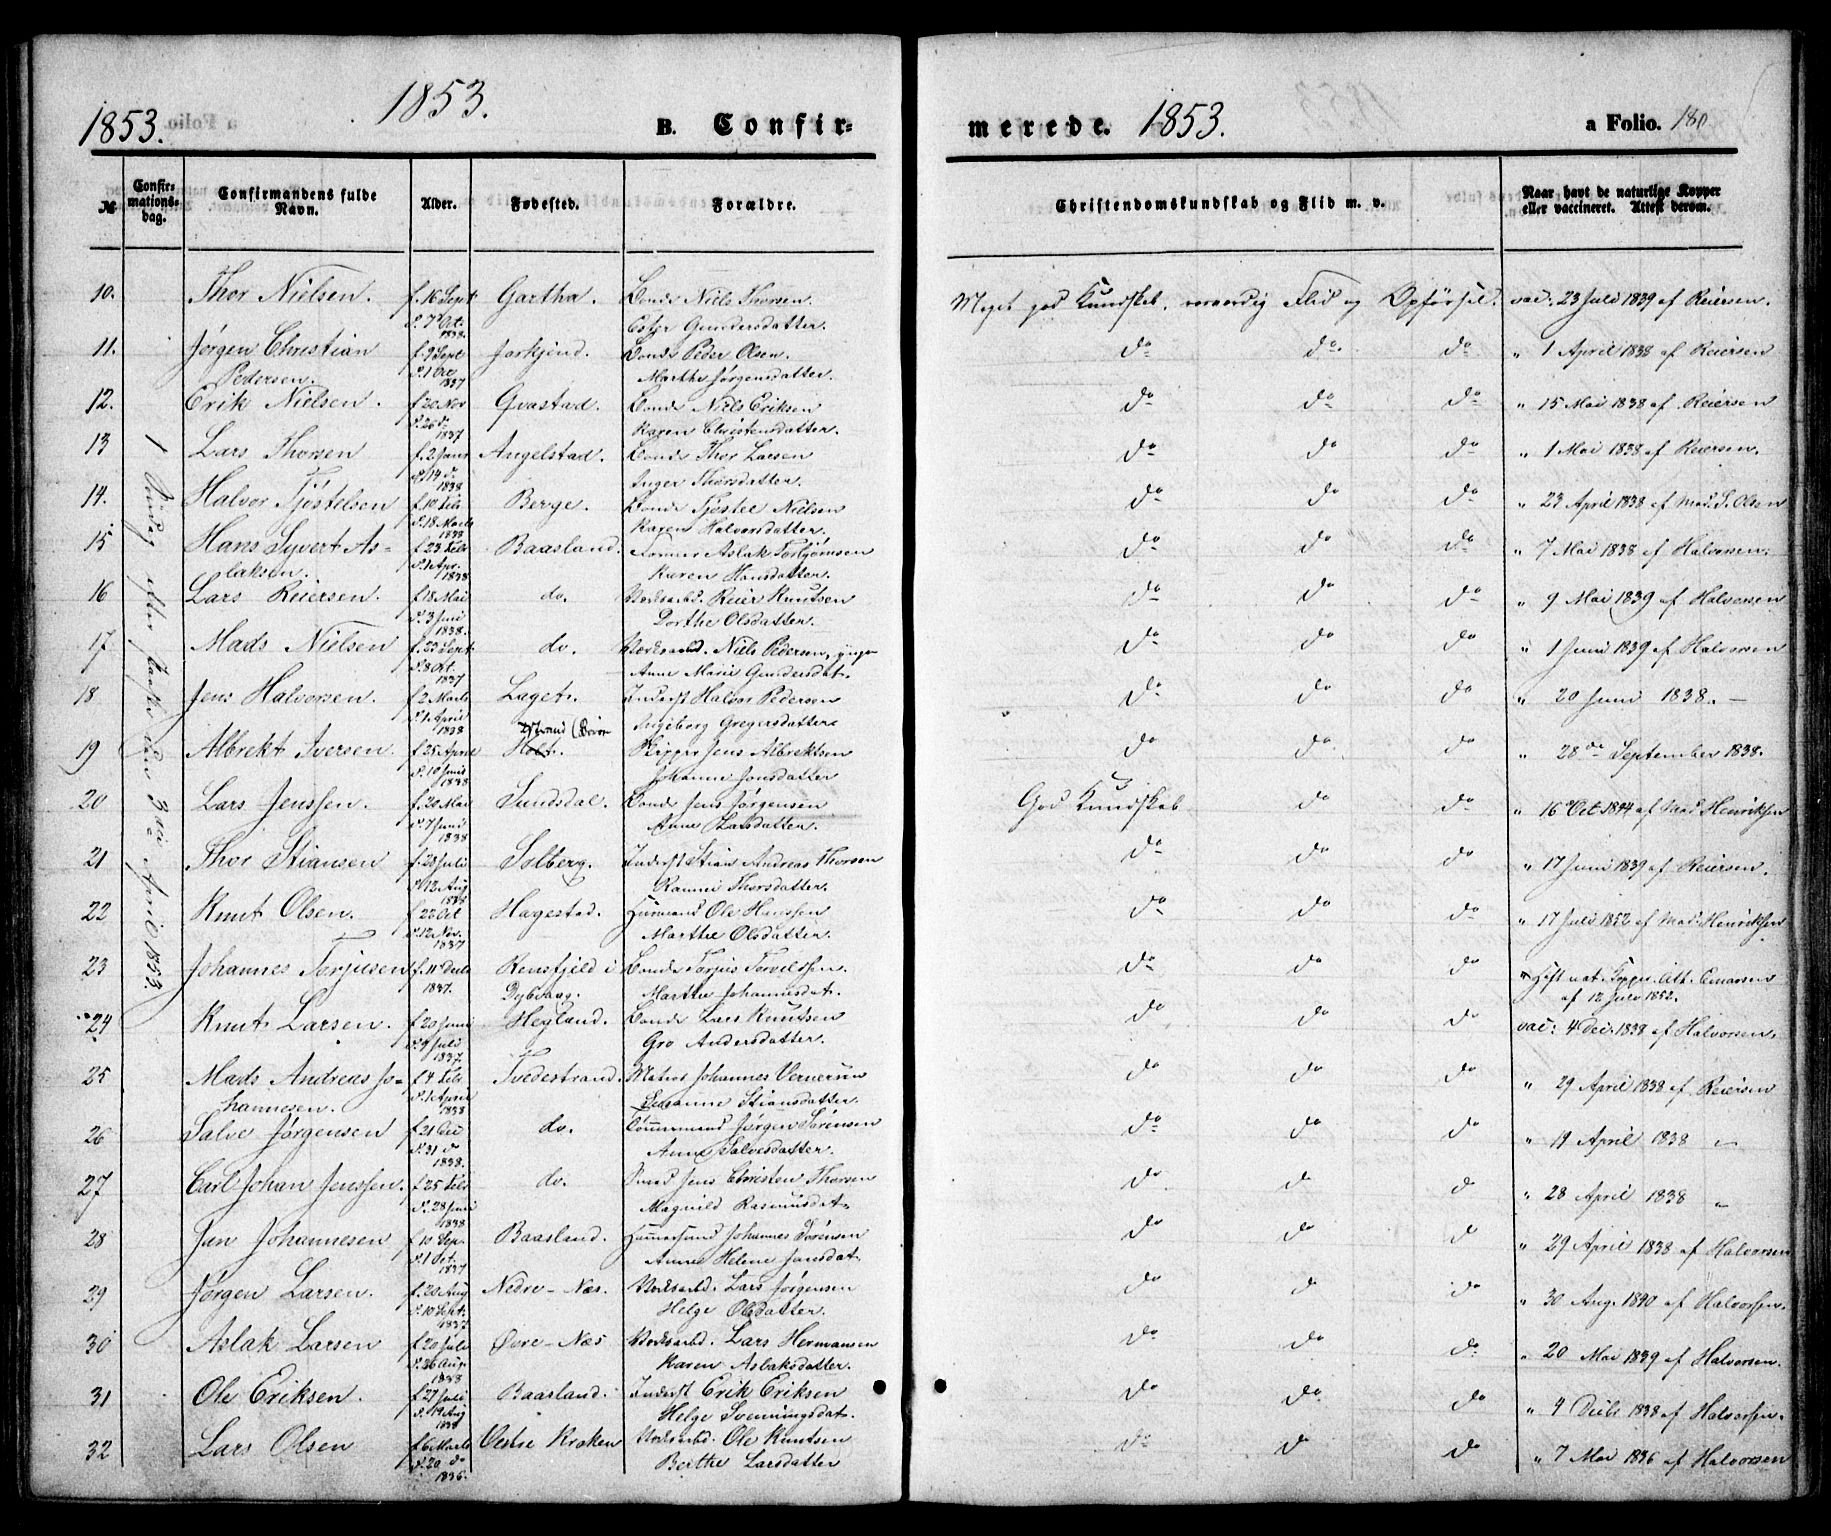 1853. 1853. B. Confir-
merede. 1853. a Folio. 180
№ Confir-mations-dag. Confirmandens fulde Navn. Alder. Fødested. Forældre. Christendomskundskab og Flid m. v. Naar havt de naturlige Kopper eller vaccineret. Attest derom.
1 Søndag efter Paaske den 3die April 1853.
10. Thor Nielsen. f. 16 Sept Gartha. Bonde Niels Thorsen Meget god Kundskab. Flid og Opførsel. vac: 23 Juli 1839 af Reiersen.
d. 7 Oct. 1838. Gundersdatter.
11. Jørgen Christian f. 9 Sept Bonde Peder Olsen. do do. do " 1 April 1838 af Reiersen
Pedersen. 1837 Marthe Jørgensdatter.
12. Erik Nielsen. f. 20 Nov Gvastad. Bonde Niels Eriksen do do do " 15 Mai 1838 af Reiersen
1837 Karen Christensdatter.
13 Lars Thorsen f. 2 Janr Angelstad. Bonde Thor Larsen do do do " 1 Mai 1838 af Reiersen.
d. 14 d. 1838 Inger Thorsdatter.
14. Halvor Tjøstelsen f. 10 Feb Berge. Bonde Tjøstel Nielsen do do do " 23 April 1838 af Mad. S. Olsen
d. 18 Marts 1838 Karen Halvorsdatter.
15 Hans Syvert As- f. 23 Feb Baasland. Aslak Torbjørnsen do do do " 7 Mai 1838 af Halvorsen.
laksen. d. 1 Apr. 1838 Karen Hansdatter.
16 Lars Reiersen. f. 18 Mai do. Reier Knutsen do do do " 9 Mai 1839 af Halvorsen
d. 3 Juni 1838. Dorthe Olsdatter.
17 Mads Nielsen f. 23 Sept do. Niels Pedersen, do do do " 1 Juni 1839 af Halvorsen
d. 8 Oct. 1837 Anne Marie Gundersdat.
18 Jens Halvorsen. f. 2 Marts Laget. Inderst Halvor Pedersen do do do " 20 Juni 1838. —
d. 1 April 1838 Ingeborg Gregersdatter
19 Albrekt Iversen. f. 25 April Holt. Skipper Jens Albrektsen do do. do " 28de September 1838.
d. 10 Juni 1838 Johanne Jonsdatter
20 Lars Jenssen. f. 20 Mai Sundsdal. Bonde Jens Jørgensen God Kundskab do do " 16 Oct 1844 af Mad Henriksen
d. 7 Juni 1838 Anne Larsdatter.
21 Thor Stiansen f. 28 Juli Solberg. Inderst Stian Andreas Thorsen do do do " 17 Juni 1839 af Reiersen.
d. 12 Aug 1838 Thorsdatter.
22 Knut Olsen. f. 22 Oct Hagestad. Huusmand Ole Hanssen do do do " 17 Juli 1852 af Mad. Henriksen
d. 12 Nov. 1837 Marthe Olsdatter.
23 Johannes Torjusen Rensfjeld i Bonde Torjus do do do
1837. Dybvaag. Marthe Johannesdat. af 12 Julo 1852.
24 Knut Larsen. f. 20 Juni Hegland. Bonde Lars Knutsen do do do vac: 4 Dec. 1838 af Halvorsen.
d. 9 Juli 1837. Gro Andersdatter.
25 Mads Andreas Jo- f. 4 Feb. Tvedestrand. Matros Johannes do do do " 29 April 1838 af Reiersen
hannesen. d. 1 April 1838 Susanne Stiansdatter.
26 Salve Jørgensen do. Jørgen Sørensen do do do " 19 April 1838 "
d. 31 d 1838. Anne Salvesdatter.
27 Carl Johan Jenssen. f. 25 Feb do. Smed Jens Christen Thorsen do do d " 28 April 1838 "
d. 28 Juni 1838 Magnild Rasmusdat.
28 Jan Johannesen f. 10 Sep. Baasland. Johannes Sørensen do do d " 29 April 1838 af Halvorsen
d. 1 Oct. 1837 Anne Helene Jansdat.
29 Jørgen Larsen. f. 20 Aug Nedre-Næs. Lars Jørgensen do d do " 30 Aug. 1840 af Halvorsen.
d. 10 Sept. 1837. Helge Olsdatter.
30 Aslak Larsen f. 20 Juli Øvre-Næs Lars Hermansen do do do " 20 Mai 1839 af Halvorsen.
d. 26 Aug. 1838 Karen Aslaksdatter.
31 Ole Eriksen. f. 27 Juli Baasland. Inderst Erik Eriksen do do. do " 4 Decb 1838 af Halvorsen.
d. 19 Aug Helge Svenningsdat.
32 Lars Olsen f. 6 Marts Vestre Kroken Ole Knutsen do d do " 7 Mai 1836 af Halvorsen
d. 20 do 1836. Berthe Larsdatter